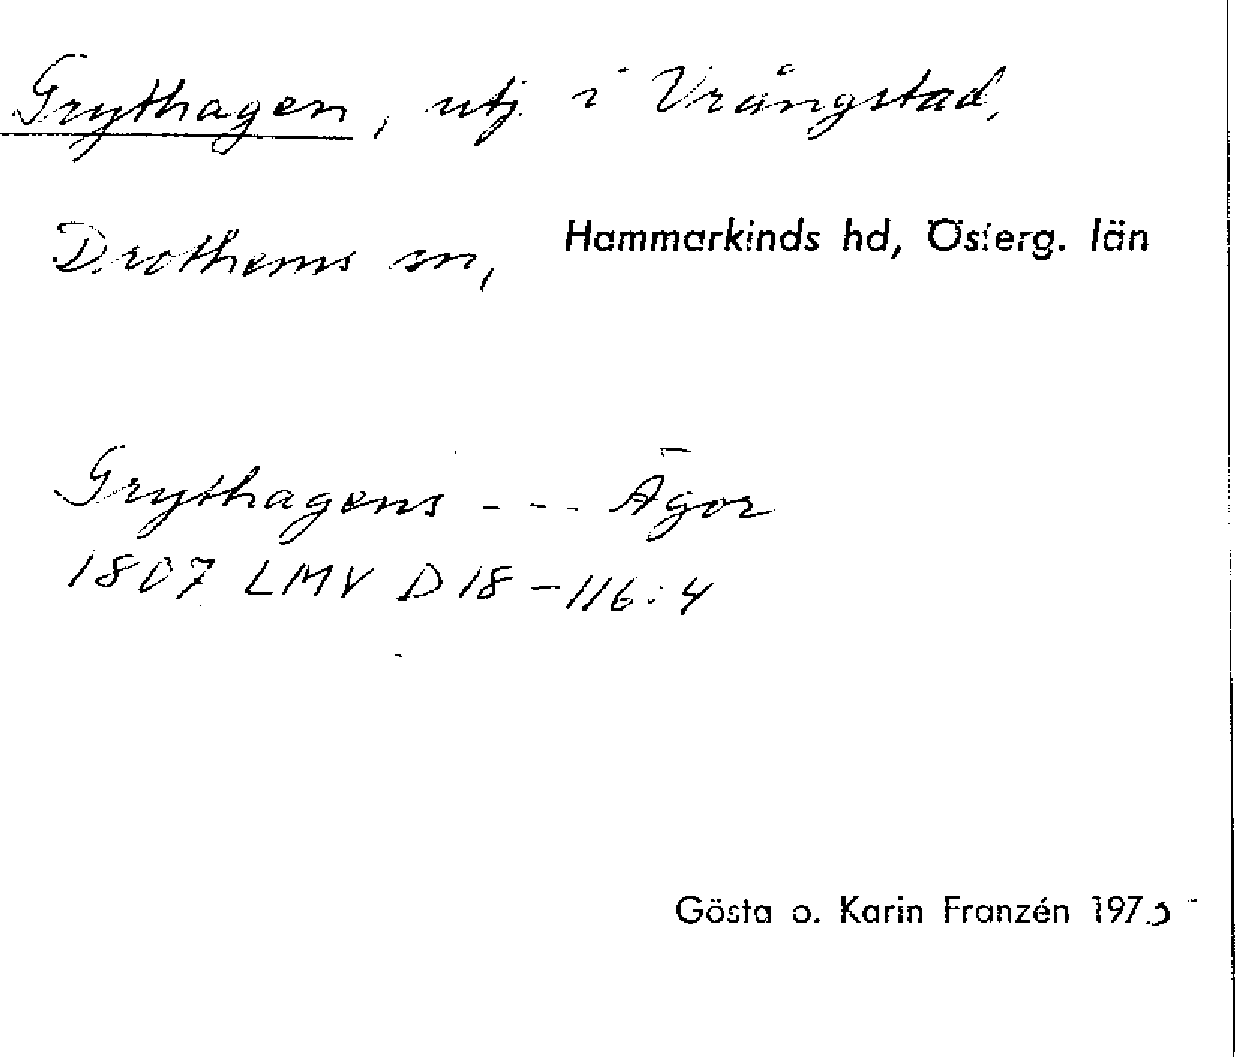 Grythagen, utj. i Vrångstad,
Drothems sn, Hammarkinds hd, Österg. län
Grythagens - - - Ägor
1807 LMV D 18-116:4
Gösta o. Karin Franzén 1975